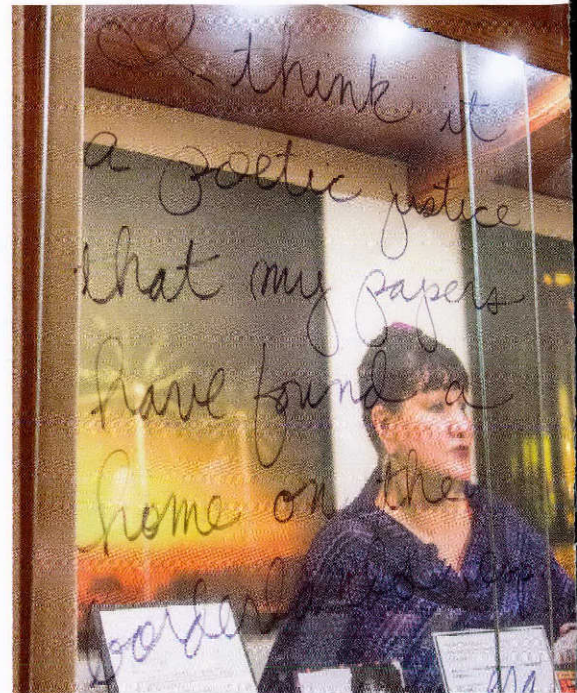 I think it
a poetic justice
that my papers
have found a
home on the